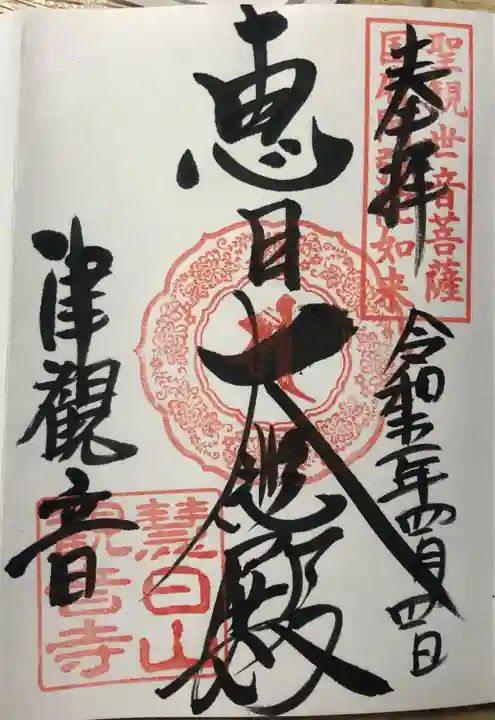 奉拝
聖観世音菩薩
国府阿弥陀如来
令和六年四月四日
恵日大悲殿
津觀音
慧日山
觀音寺